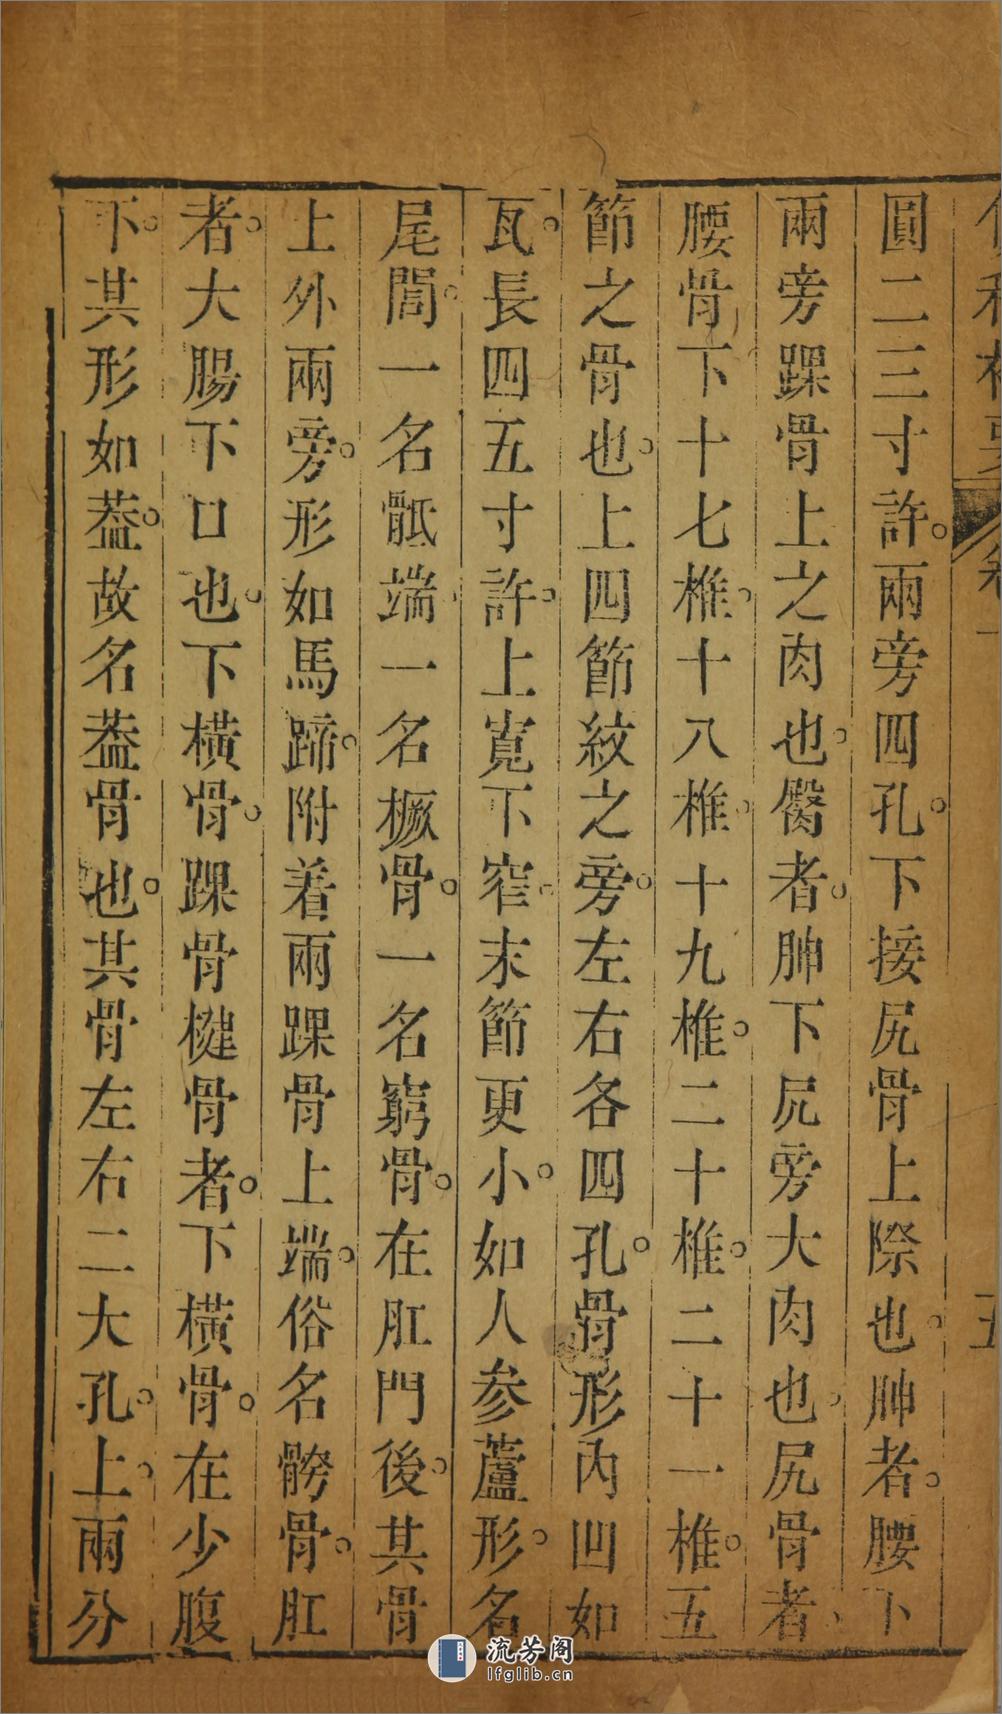 圓二三寸許。兩旁四孔。下接尻骨上際也。胂者。腰下
兩旁踝骨上之肉也。臀者。胂下尻旁大肉也。尻骨者。
腰骨下十七椎。十八椎。十九椎。二十椎。二十一椎。五
節之骨也。上四節紋之旁。左右各四孔。骨形內凹如
瓦。長四五寸許。上寬下窄。末節更小。如人参蘆形。名
尾閭。一名骶端。一名橛骨。一名窮骨。在肛門後。其骨
上外兩旁。形如馬蹄。附着兩踝骨上端。俗名骻骨。肛
者。大腸下口也。下橫骨。踝骨楗骨者。下橫骨。在少腹
下。其形如葢。故名葢骨也。其骨左右二大孔。上。兩分
五
流芳阁
lfglib.cn